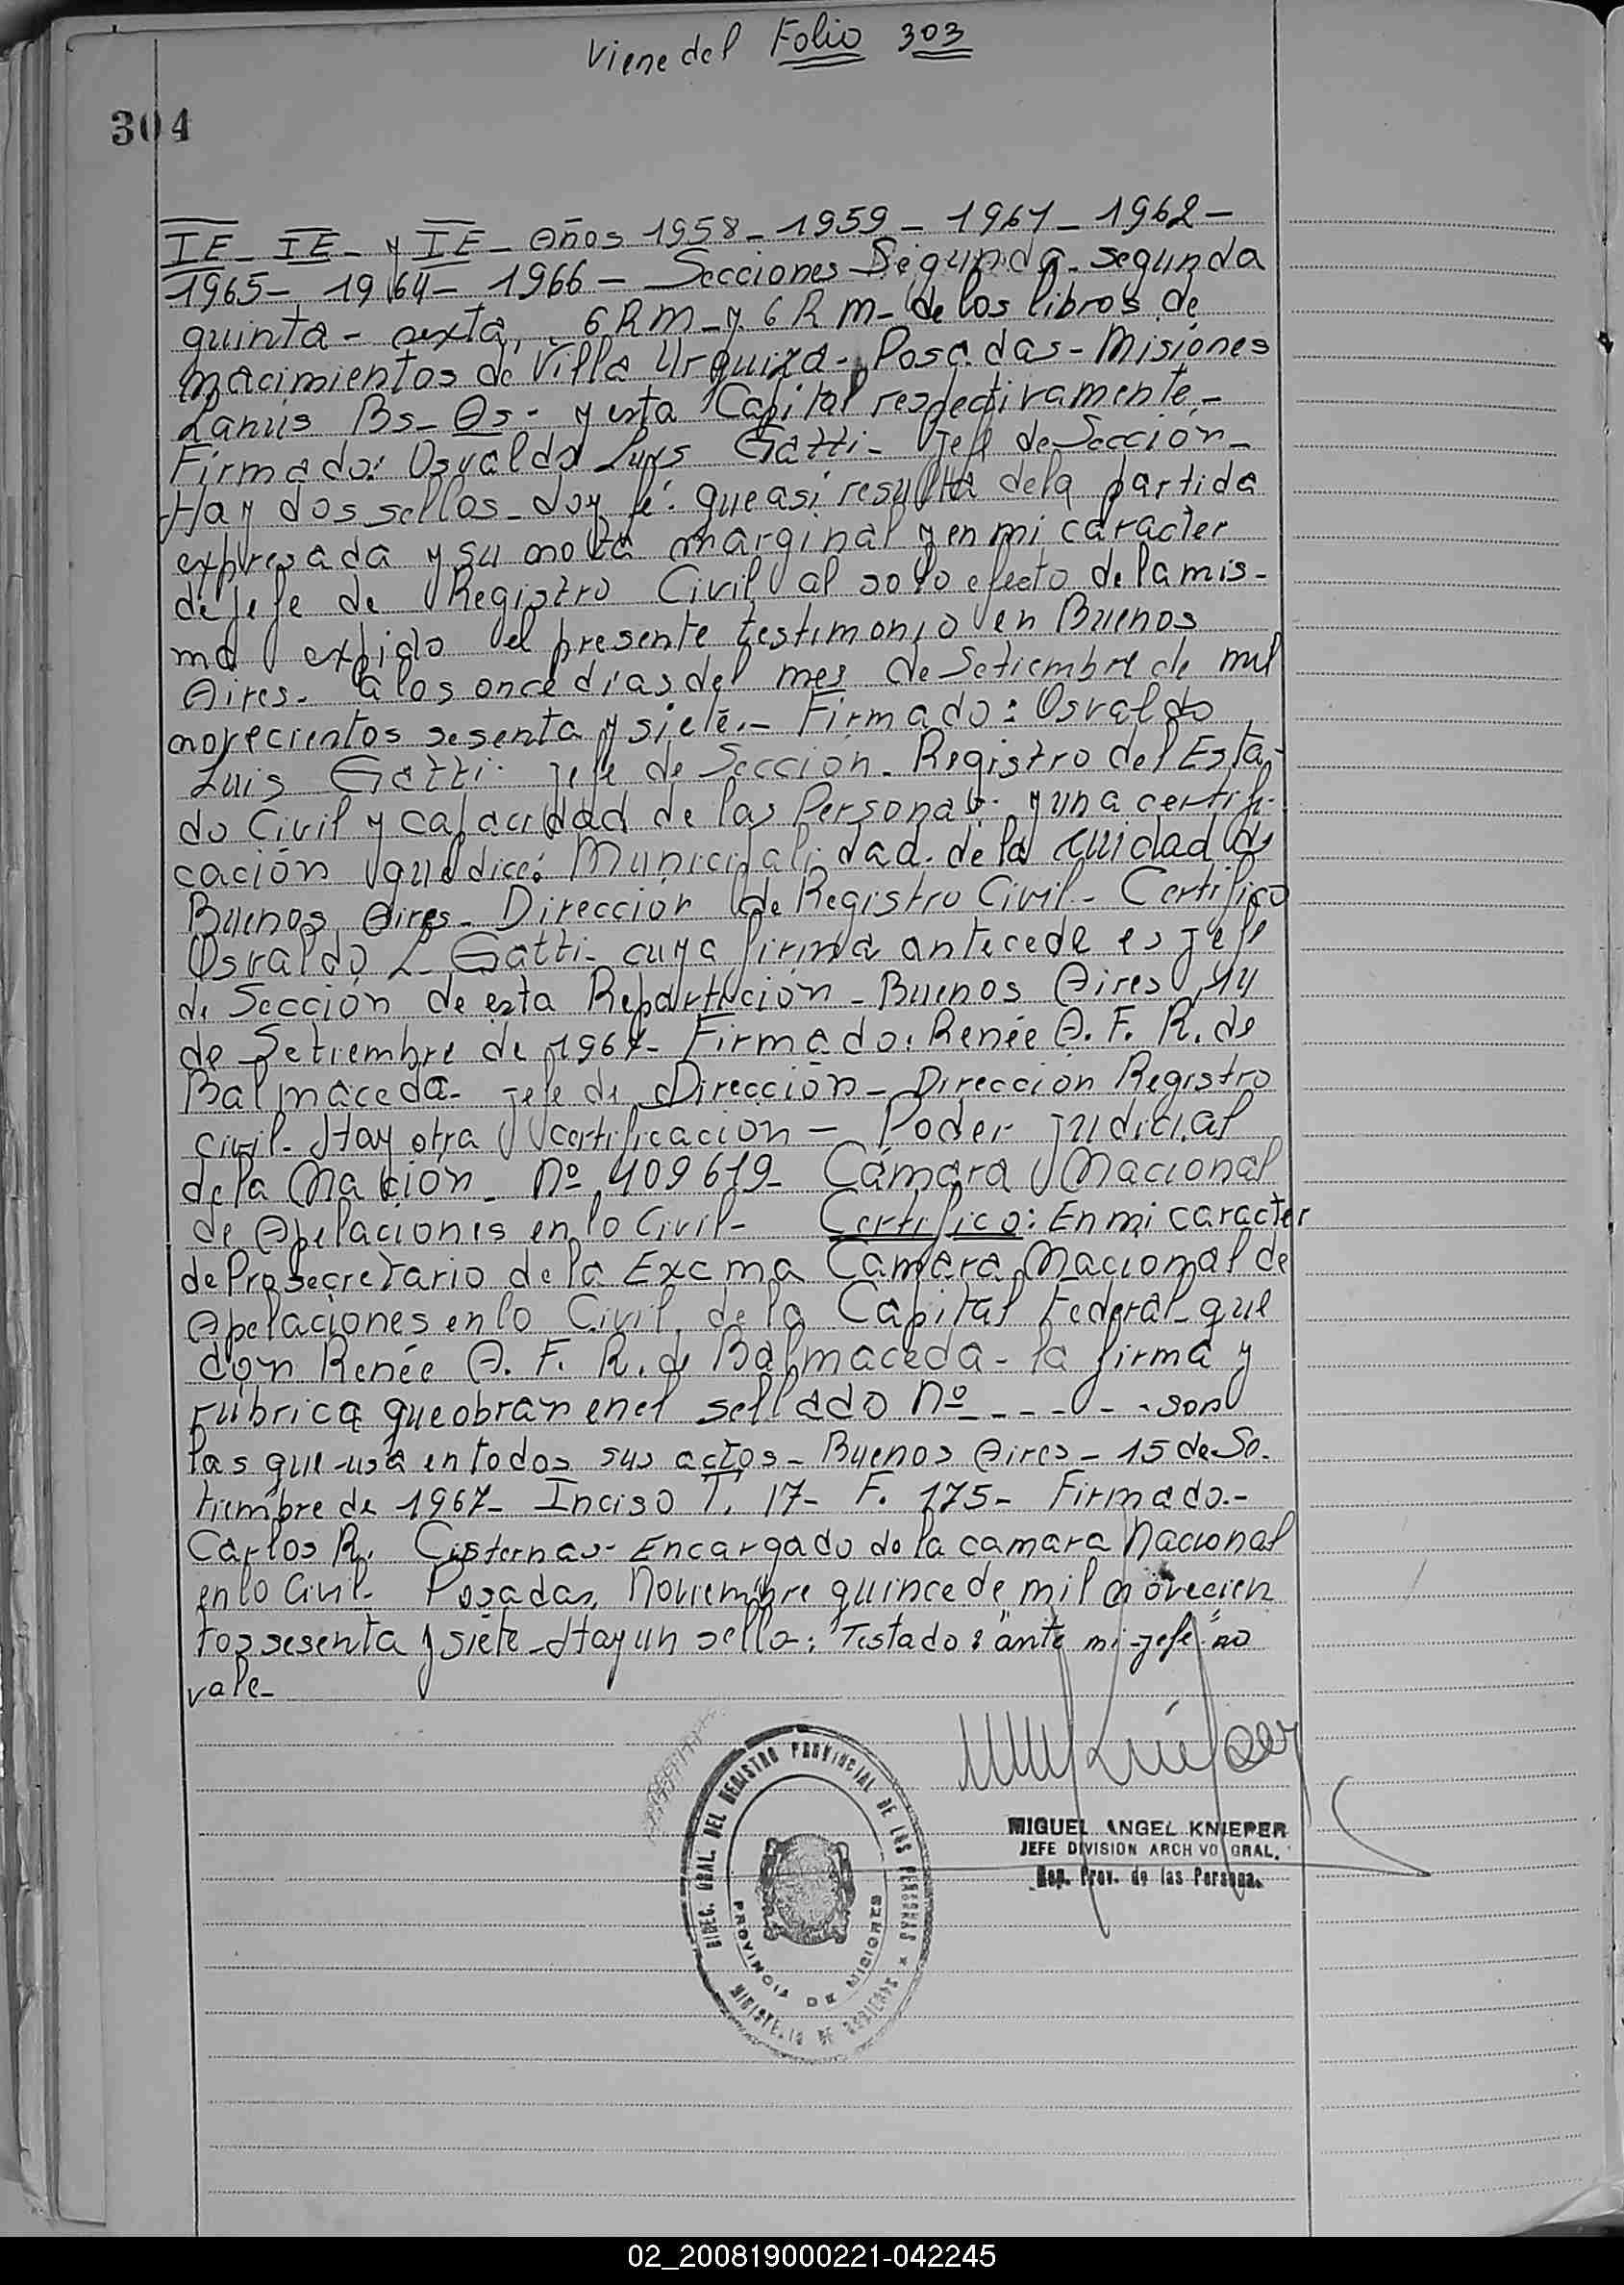 Viene del Folio 303
304
IE - IE - y IE - Años 1958 - 1959 - 1961 - 1962 -
1965 - 1964 - 1966 - Secciones Segunda - segunda
quinta - sexta, 6 R m - y 6 R m - de los libros de
nacimientos de Villa Urquiza - Posadas - Misiones
Lanús Bs - As - y esta Capital respectivamente. -
Firmado: Osvaldo Luys Gatti - Jefe de Sección -
Hay dos sellos - doy fé: que asi resulta dela partida
expresada y su nota marginal y en mi caracter
de Jefe de Registro Civil al solo efecto de la mis-
ma expido el presente testimonio en Buenos
Aires - a los once dias del mes de Setiembre de mil
novecientos sesenta y siete. - Firmado: Osvaldo
Luis Gatti - Jefe de Sección - Registro del Esta-
do Civil y capacidad de las Personas - y una certifi-
cación que dice: Municipalidad de la cuidad de
Buenos Aires - Dirección de Registro Civil - Certifico
Osvaldo L - Gatti - cuya firma antecede es Jefe
de Sección de esta Repartición - Buenos Aires, 14
de Setiembre de 1967 - Firmado: Renée A. F. R. de
Balmaceda - Jefe de Dirección - Dirección Registro
civil - Hay otra certificacion - Poder Judicial
de la Nación - Nº 409619 - Cámara Nacional
de Apelaciones en lo Civil - Certifico: En mi caracter
de Prosecretario de la Excma Camara Nacional de
Apelaciones en lo Civil de la Capital Federal - que
don Renée A. F. R. de Balmaceda - la firma y
rubrica que obran en el sellado Nº - - - - - - son
las que usa en todos sus actos - Buenos Aires - 15 de Se-
tiembre de 1967 - Inciso T. 17 - F. 175 - Firmado. -
Carlos R. Cisternas - Encargado de la camara Nacional
en lo Civil - Posadas, Noviembre quince de mil novecien
tos sesenta y siete - Hay un sello: Testado: "ante mi - jefe" no
vale -
DIREC. GRAL. DEL REGISTRO PROVINCIAL DE LAS PERSONAS *
PROVINCIA DE MISIONES
MINISTERIO DE GOBIERNO
MIGUEL ANGEL KNIEPER
JEFE DIVISION ARCHIVO GRAL.
Reg. Prov. de las Persona.
02_200819000221-042245